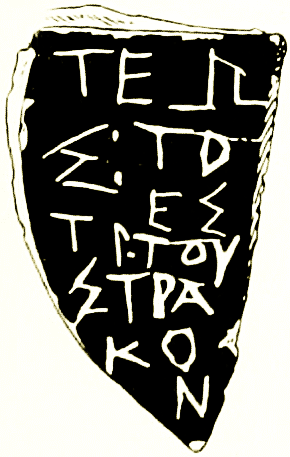 ΤΕΩ
Σ:ΤΟ
ΕΣ
ΤΙ:ΤΟΥ
ΣΤΡΑ
ΚΟ
Ν